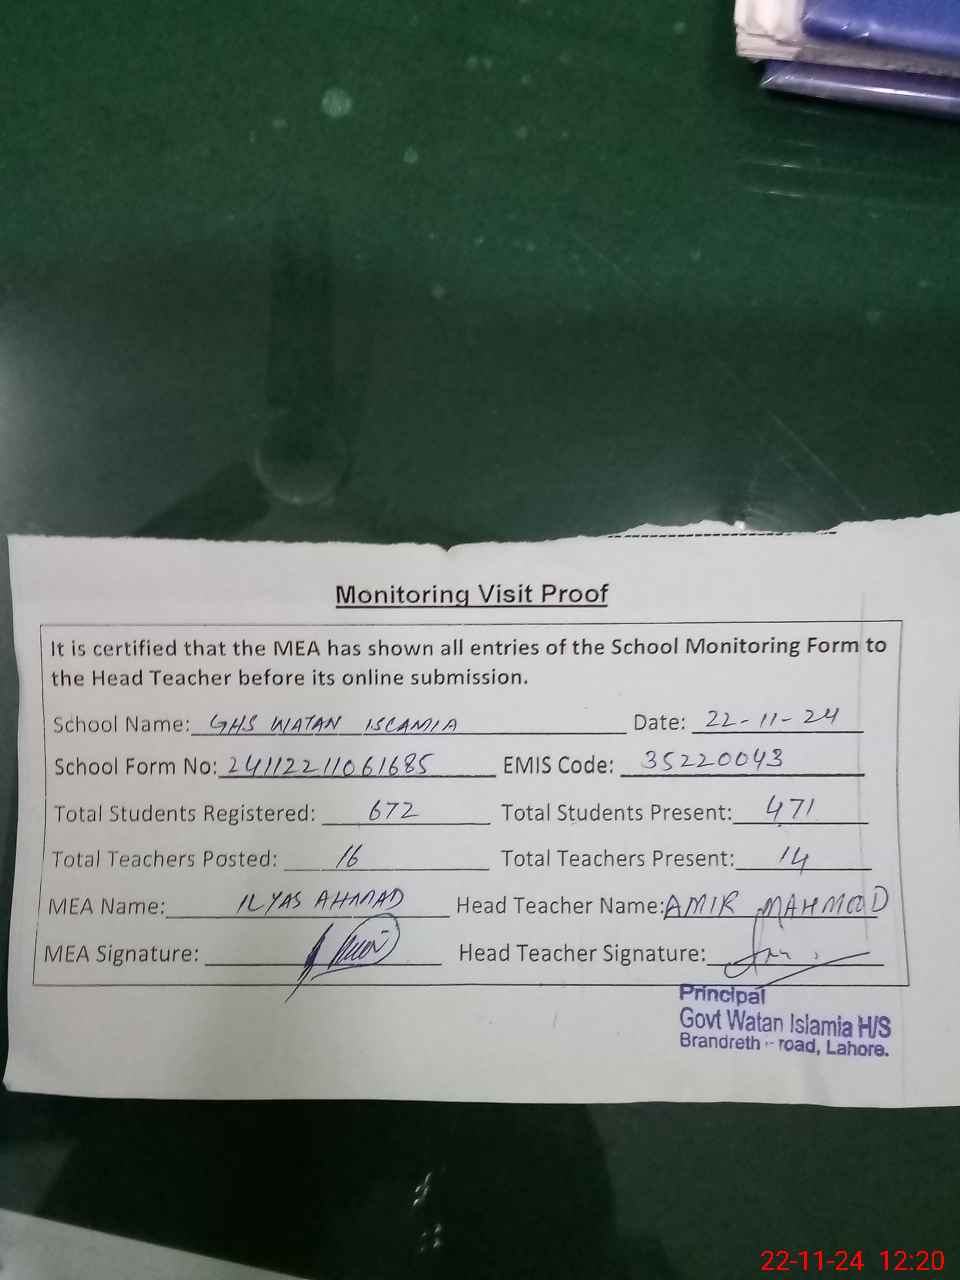 Monitoring Visit Proof
It is certified that the MEA has shown all entries of the School Monitoring Form to
the Head Teacher before its online submission.
School Name: GHS WATAN ISLAMIA Date: 22-11-24
School Form No: 24112211061685 EMIS Code: 35220043
Total Students Registered: 672 Total Students Present: 471
Total Teachers Posted: 16 Total Teachers Present: 14
MEA Name: ILYAS AHMAD Head Teacher Name: AMIR MAHMOOD
MEA Signature: Head Teacher Signature:
Principal
Govt Watan Islamia H/S
Brandreth - road, Lahore.
22-11-24 12:20